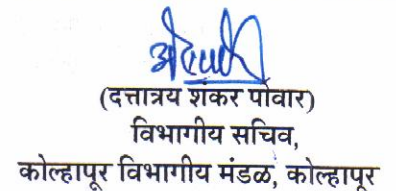 (दत्तात्रय शंकर पोवार)
विभागीय सचिव,
कोल्हापूर विभागीय मंडळ, कोल्हापूर